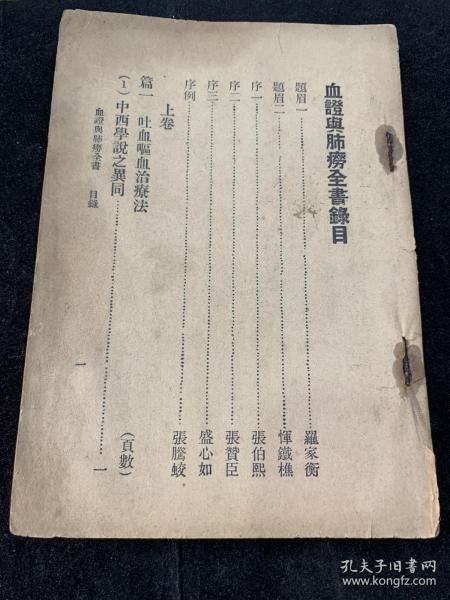 血證與肺癆全書錄目
題眉一……羅家衡
題眉二……惲鐵樵
序一……張伯熙
序二……張贊臣
序三……盛心如
序例……張騰蛟
上卷
篇一 吐血嘔血治療法 (頁數)
(1)中西學說之異同……一
血證與肺癆全書 目錄 一
孔夫子旧书网
www.kongfz.com